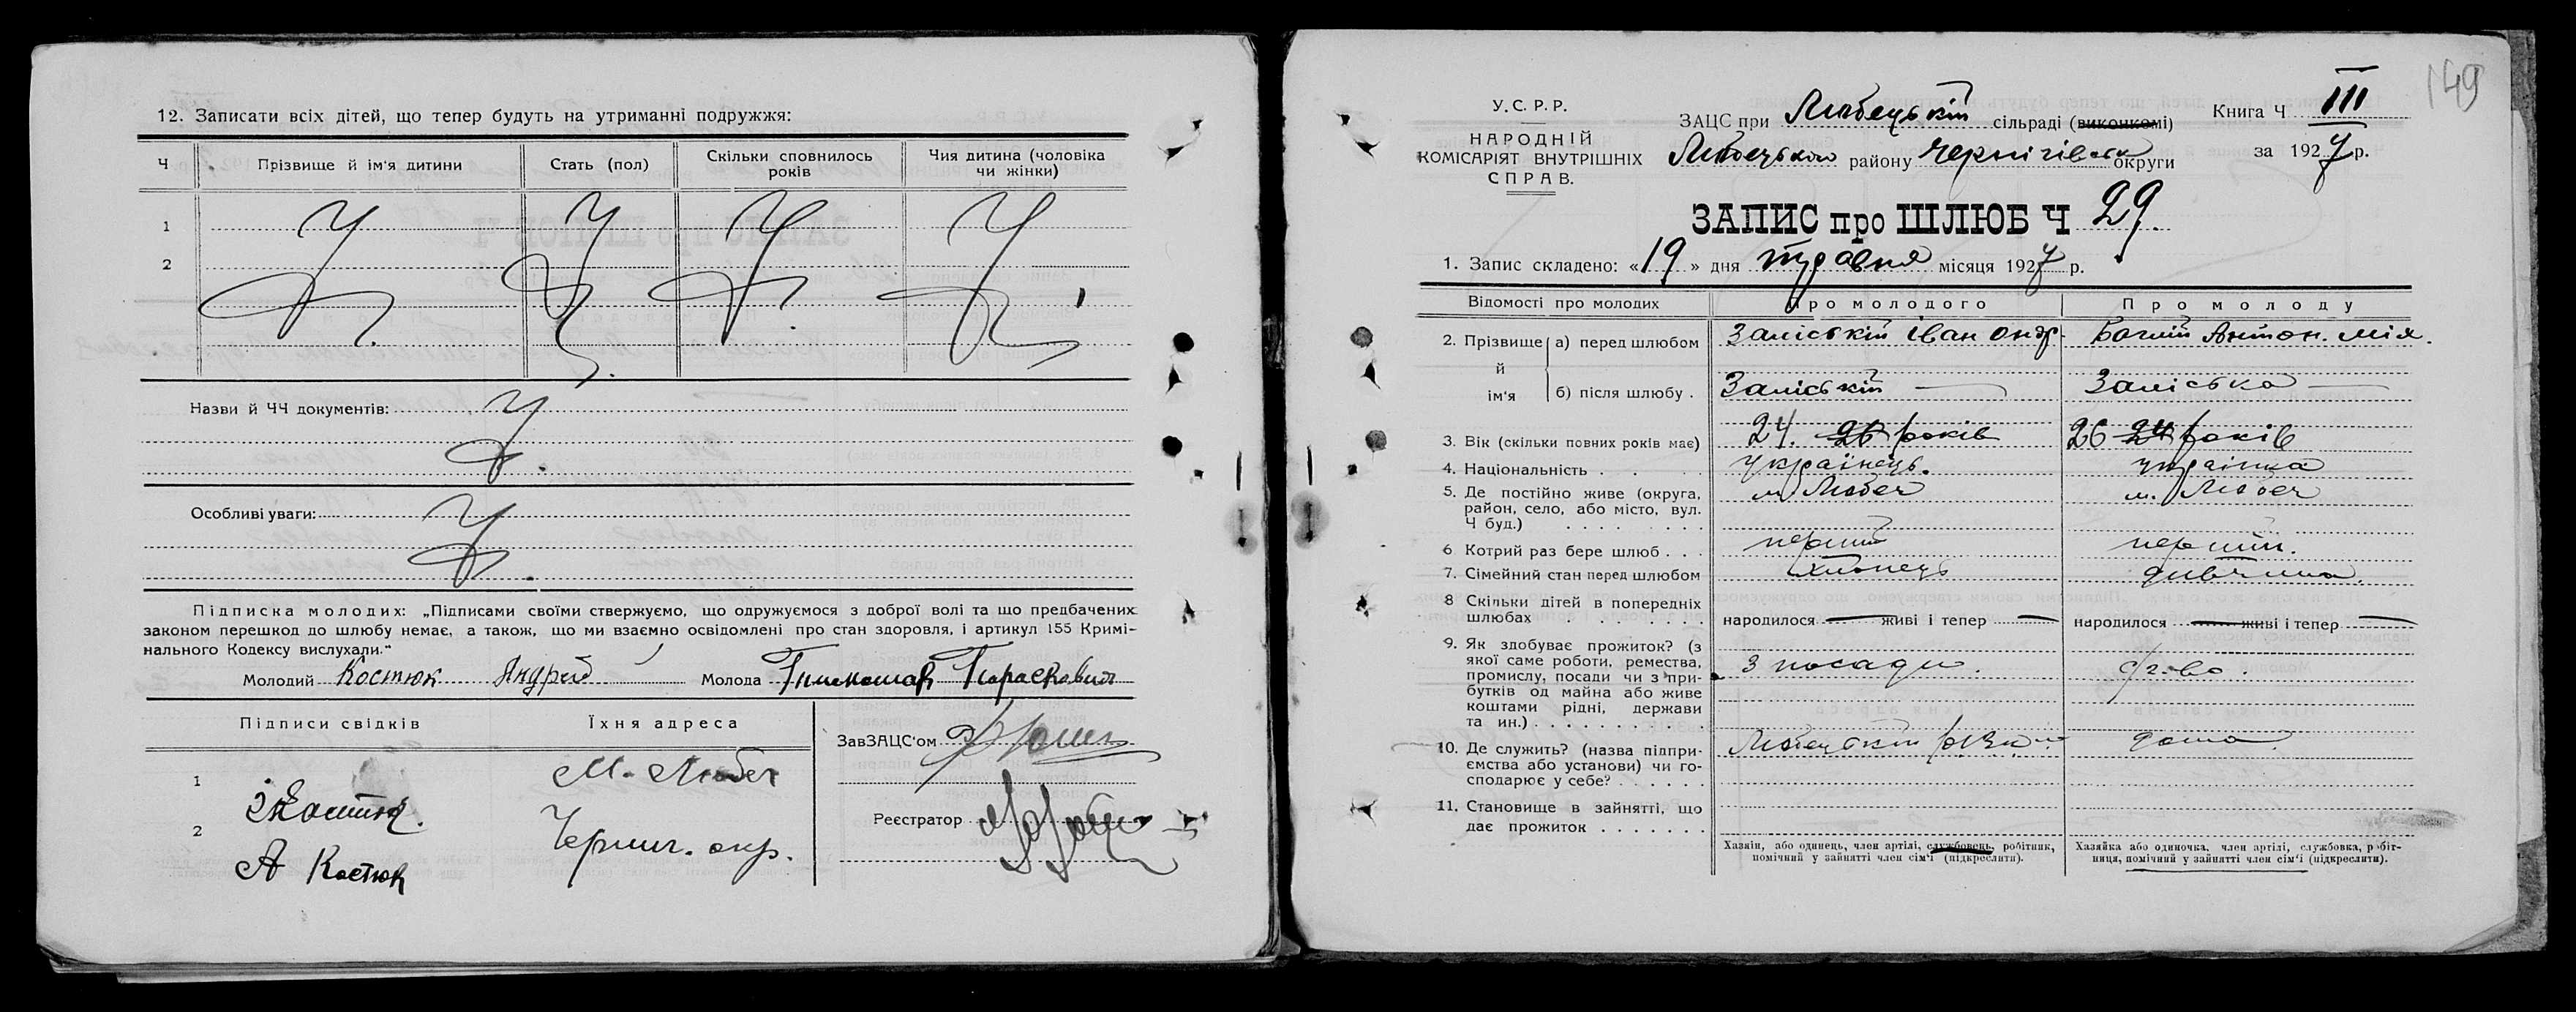 12. Записати всіх дітей, що тепер будуть на утриманні подружжя:
Ч Прізвище й ім'я дитини Стать (пол) Скільки сповнилось років Чия дитина (чоловіка чи жінки)
1
2
Назви й ЧЧ документів:
Особливі уваги:
Підписка молодих: „Підписами своїми стверджуємо, що одружуємося з доброї волі та що предбачених
законом перешкод до шлюбу немає, а також, що ми взаємно освідомлені про стан здоровля, і артикул 155 Кримі-
нального Кодексу вислухали."
Молодий Костюк Андрій Молода Парасковия
Підписи свідків Їхня адреса
ЗавЗАЦС'ом
1 Костюк. М. Любеч
Реєстратор
2 А Костюк Черниг. окр.
149
У.С.Р.Р.
НАРОДНІЙ
КОМІСАРІЯТ ВНУТРІШНІХ
СПРАВ.
ЗАЦС при Любецькій сільраді (виконкомі)
Любецького району Чернігівськ округи
Книга Ч III
за 1927 р.
ЗАПИС про ШЛЮБ Ч 29.
1. Запис складено: «19» дня травня місяця 1927 р.
Відомості про молодих Про молодого Про молоду
2. Прізвище й ім'я а) перед шлюбом Заліський Іван Андр. Антон.
б) після шлюбу . Заліський Заліська
3. Вік (скільки повних років має) 24. 26 років 26 24 років
4. Національність . . . українець. українка
5. Де постійно живе (округа, м Любеч м. Любеч
район, село, або місто, вул.
Ч буд.) . . . . . . . .
6 Котрий раз бере шлюб . . . перший перший.
7. Сімейний стан перед шлюбом хлопець дивчина.
8 Скільки дітей в попередніх
шлюбах . . . . . . . . народилося — живі і тепер — народилося — живі і тепер —
9. Як здобуває прожиток? (з з посади.
якої саме роботи, ремества,
промислу, посади чи з при-
бутків од майна або живе
коштами рідні, держави
та ин.) . . . . . . . . .
10. Де служить? (назва підпри- Любецький дома.
ємства або установи) чи го-
сподарює у себе? . . . . . .
11. Становище в зайнятті, що
дає прожиток . . . . . . .
Хазяін, або одинець, член артілі, службовець, робітник,
помічний у зайнятті член сім'ї (підкреслити).
Хазяйка або одиночка, член артілі, службовка, робіт-
ниця, помічний у зайнятті член сім'ї (підкреслити).